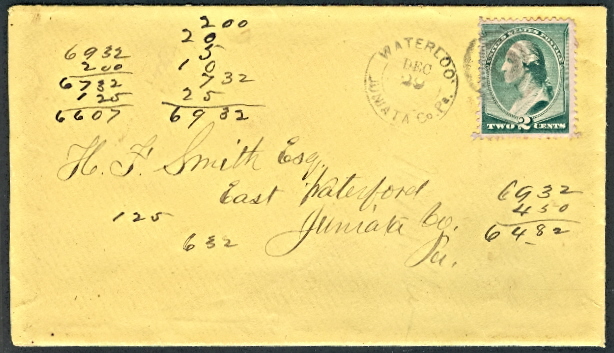 200
20
5
10
732
25
6932
6932
200
6732
125
6607
WATERLOO
DEC
29
JUNIATA Co. Pa.
UNITED STATES POSTAGE
TWO 2 CENTS
H. F. Smith Esq.
East Waterford
Juniata Co.
Pa.
125
632
6932
450
6482